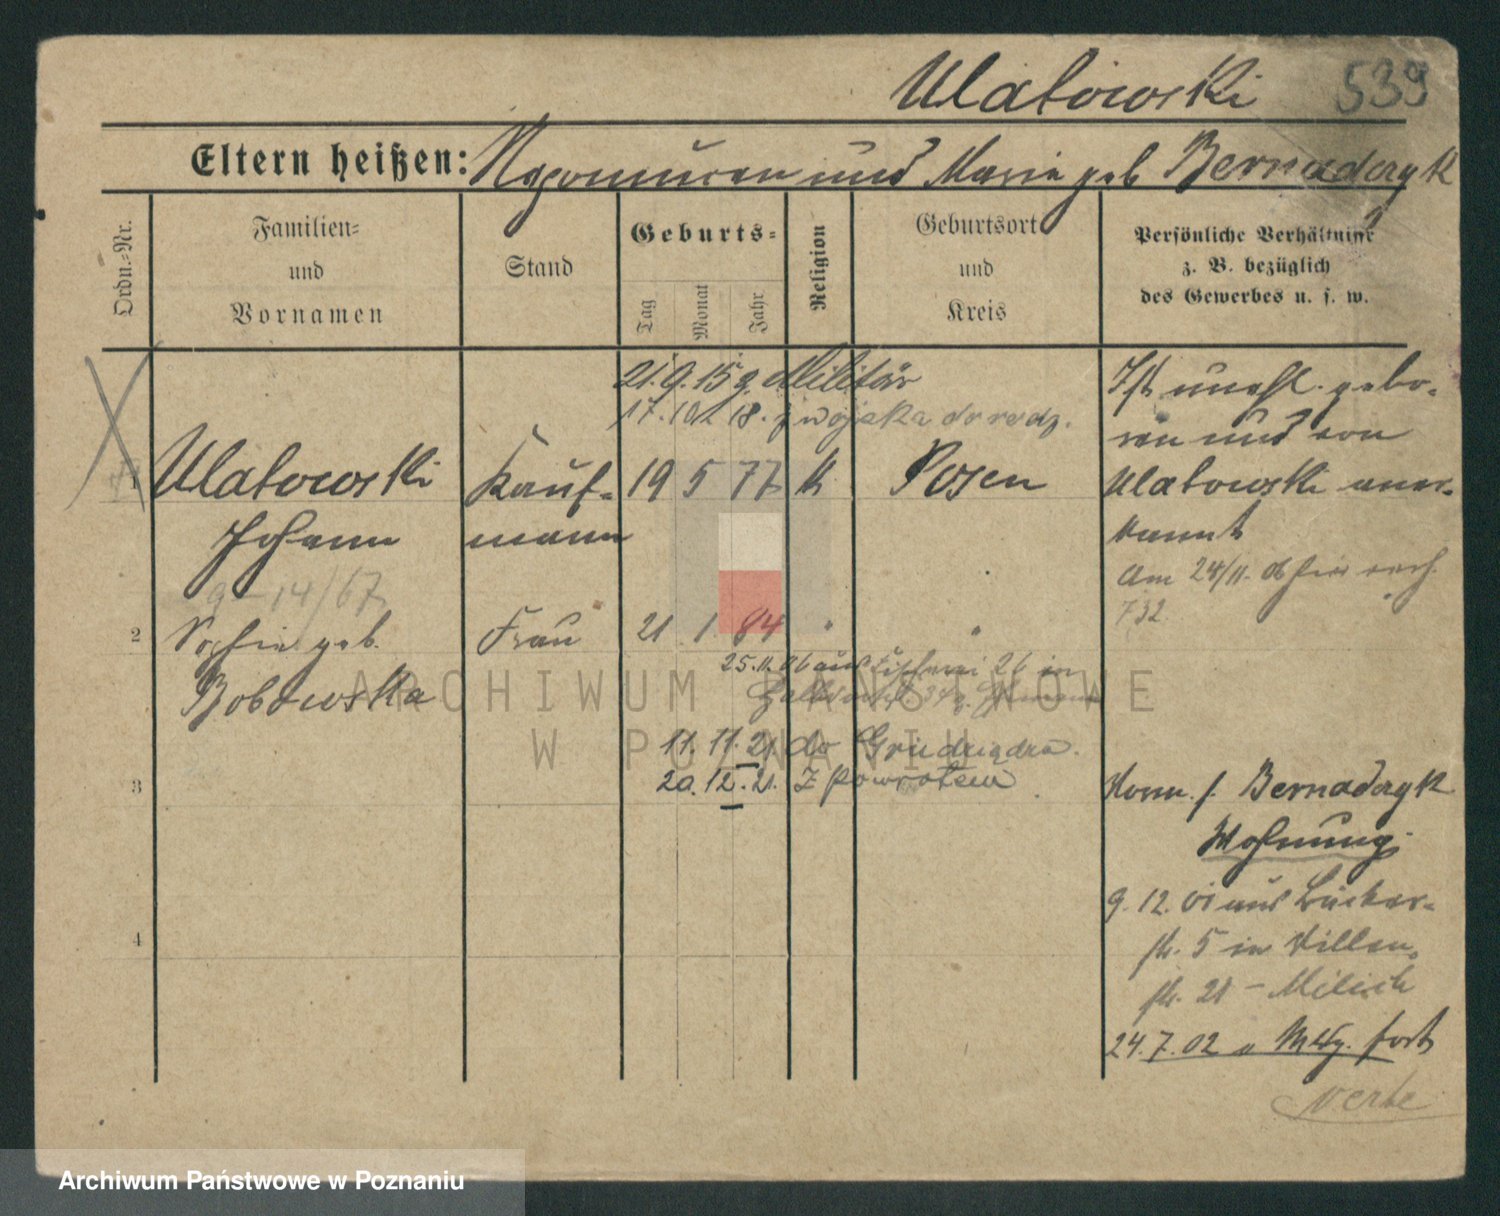 Ulatowski 539
Eltern heißen: Nepomucen und Maria geb Bernadczyk
Ordn.-Nr.
Familien-
und
Vornamen
Stand
Geburts-
Tag Monat Jahr
Religion
Geburtsort
und
Kreis
Persönliche Verhältnisse
z. B. bezüglich
des Gewerbes u. s. w.
21. 9. 15 z. Militär
17. 18. z wojska
1 Ulatowski
Johann
Kauf-
mann
19 5 77 k Posen
Ist unehl. gebo-
ren und von
Ulatowski aner-
kannt
Am 24/11. 06 hier
732
9-14/67
2 Sophie geb.
Bobowska
Frau 21 1 84 " "
25.11.06 aus 26 in
11. 11. 21 do Grudziądza.
20. 12. 21. Z powrotem
3
4
Bernadczyk
Wohnung
9. 12. 01 aus Bäcker-
str. 5 in
str. 21 -
24. 7. 02 fort
verte
ARCHIWUM PAŃSTWOWE
W POZNANIU
Archiwum Państwowe w Poznaniu